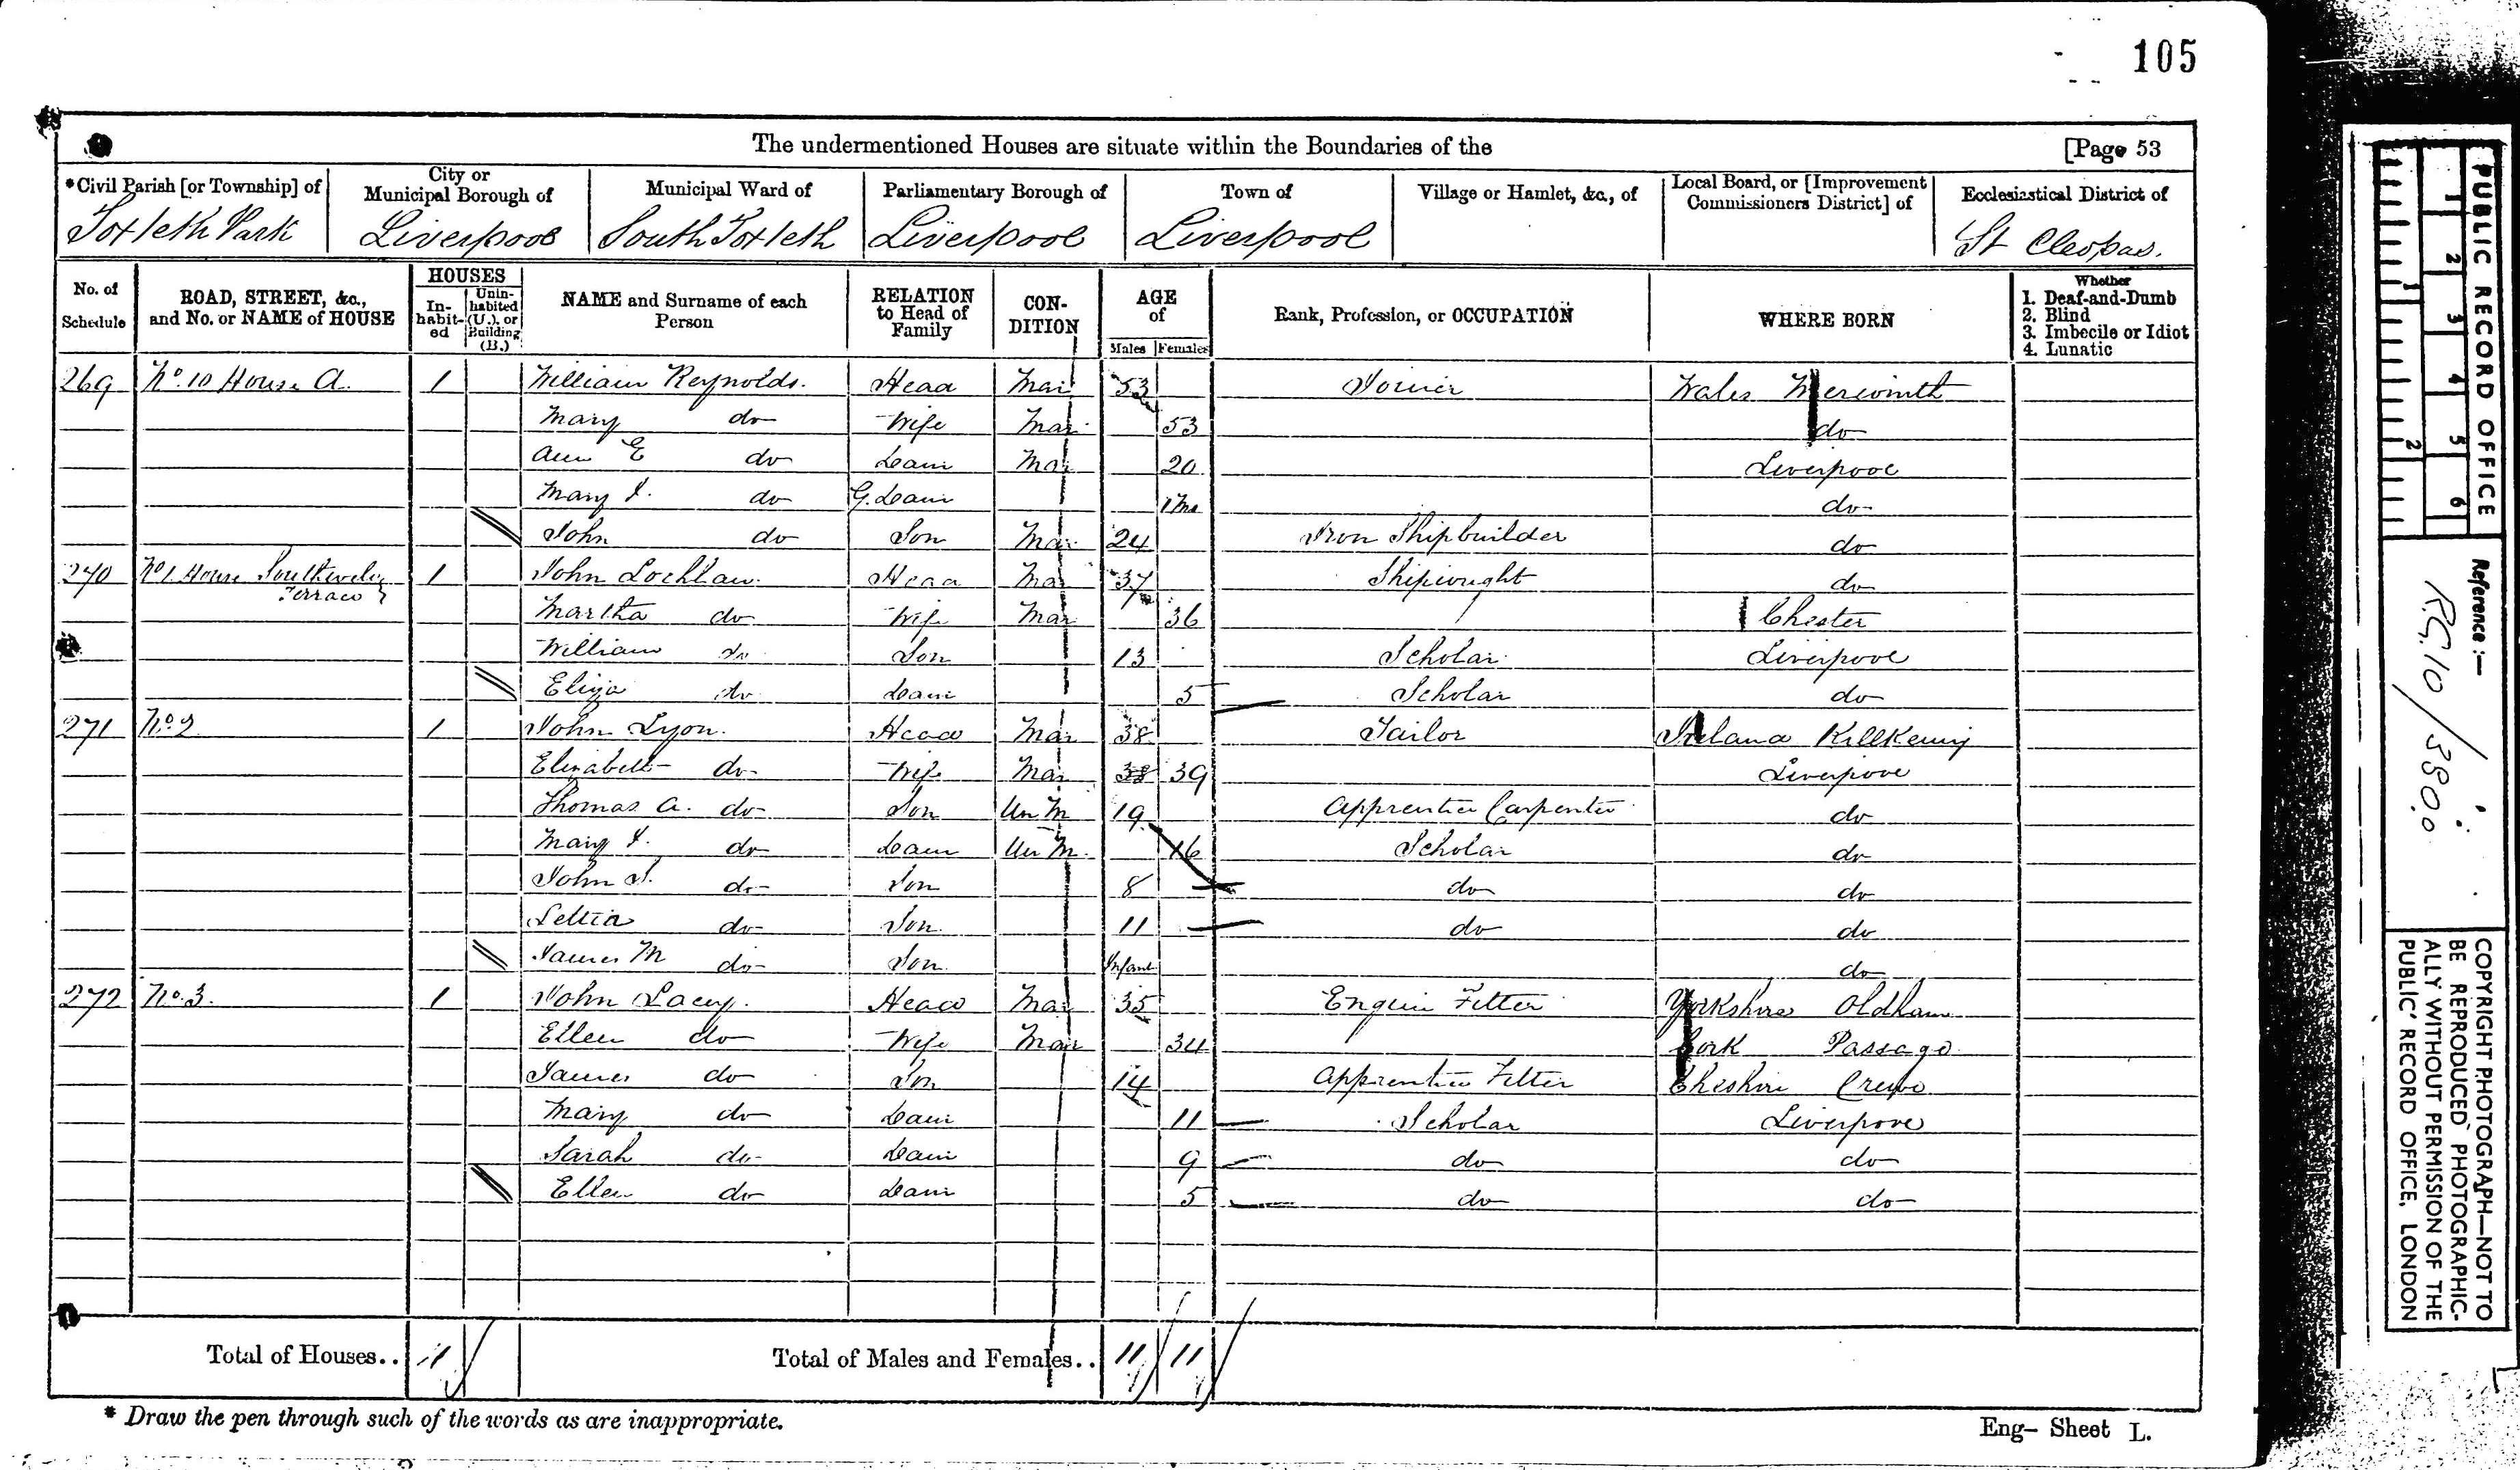 105
The undermentioned Houses are situate within the Boundaries of the [Page 53
*Civil Parish [or Township] of City or Municipal Borough of Municipal Ward of Parliamentary Borough of Town of Village or Hamlet, &c., of Local Board, or [Improvement Commissioners District] of Ecclesiastical District of
Toxteth Park Liverpool South Toxteth Liverpool Liverpool St Cleopas.
No. of Schedule ROAD, STREET, &c., and No. or NAME of HOUSE HOUSES In-habit-ed Unin-habited (U.), or Building (B.) NAME and Surname of each Person RELATION to Head of Family CON-DITION AGE of Males Females Rank, Profession, or OCCUPATION WHERE BORN Whether 1. Deaf-and-Dumb 2. Blind 3. Imbecile or Idiot 4. Lunatic
269 No. 10 House A. 1 William Reynolds. Head Mar 53 Joiner Wales
Mary do Wife Mar. 53 do
Ann E do Daur Mar 20 Liverpool
Mary J. do G. Daur 1 Mo do
John do Son Mar 24 Iron Shipbuilder do
270 No 1 House Terrace 1 John Head Mar 37 Shipwright do
Martha do Wife Mar 36 Chester
William do Son 13 Scholar Liverpool
Eliza do Daur 5 Scholar do
271 No. 2 1 John Lyon. Head Mar 38 Tailor Ireland Killkenny
Elizabeth do Wife Mar 38 39 Liverpool
Thomas A. do Son Un M 19 Apprentice Carpenter do
Mary J. do Daur Un M. 16 Scholar do
John S. do Son 8 do do
Lettia do Son 11 do do
James M do Son Infant do
272 No. 3. 1 John Lacey. Head Mar 35 Engin Fitter Yorkshire Oldham
Ellen do Wife Mar 34 Cork Passage
James do Son 14 Apprentice Fitter Cheshire Crewe
Mary do Daur 11 Scholar Liverpool
Sarah do Daur 9 do do
Ellen do Daur 5 do do
Total of Houses.. 4 Total of Males and Females.. 11 11
* Draw the pen through such of the words as are inappropriate. Eng- Sheet L.
PUBLIC RECORD OFFICE
1 2 3 4 5 6
1 2
Reference :-
R.G. 10 / 380
COPYRIGHT PHOTOGRAPH—NOT TO
BE REPRODUCED PHOTOGRAPHIC-
ALLY WITHOUT PERMISSION OF THE
PUBLIC RECORD OFFICE, LONDON